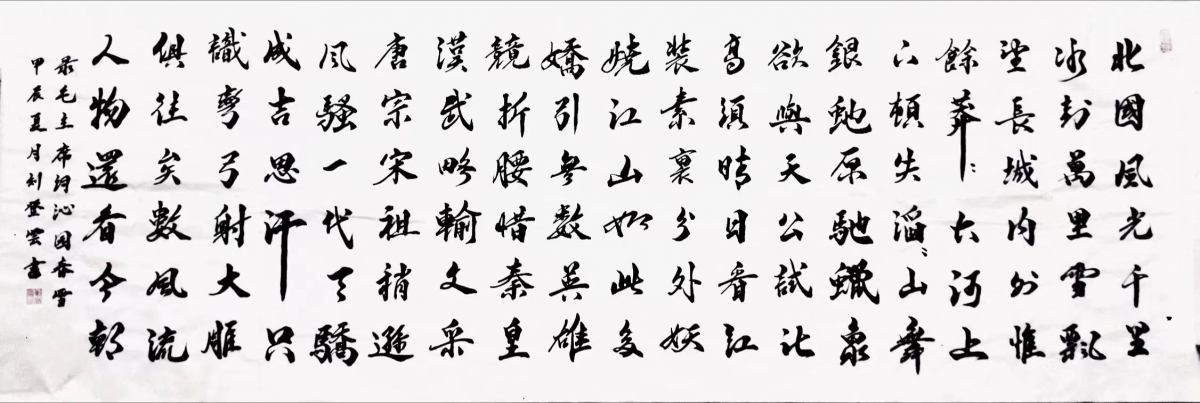 北國風光千里
冰封萬里雪飄
望長城内外惟
餘莽〻大河上
下頓失滔〻山舞
銀蛇原馳蠟象
欲與天公試比
高須晴日看紅
裝素裹分外妖
嬈江山如此多
嬌引無數英雄
競折腰惜秦皇
漢武略輸文采
唐宗宋祖稍遜
風騷一代天驕
成吉思汗只
識彎弓射大雕
俱往矣數風流
人物還看今朝
录毛主席詞沁園春雪
甲辰夏月刘登雲書